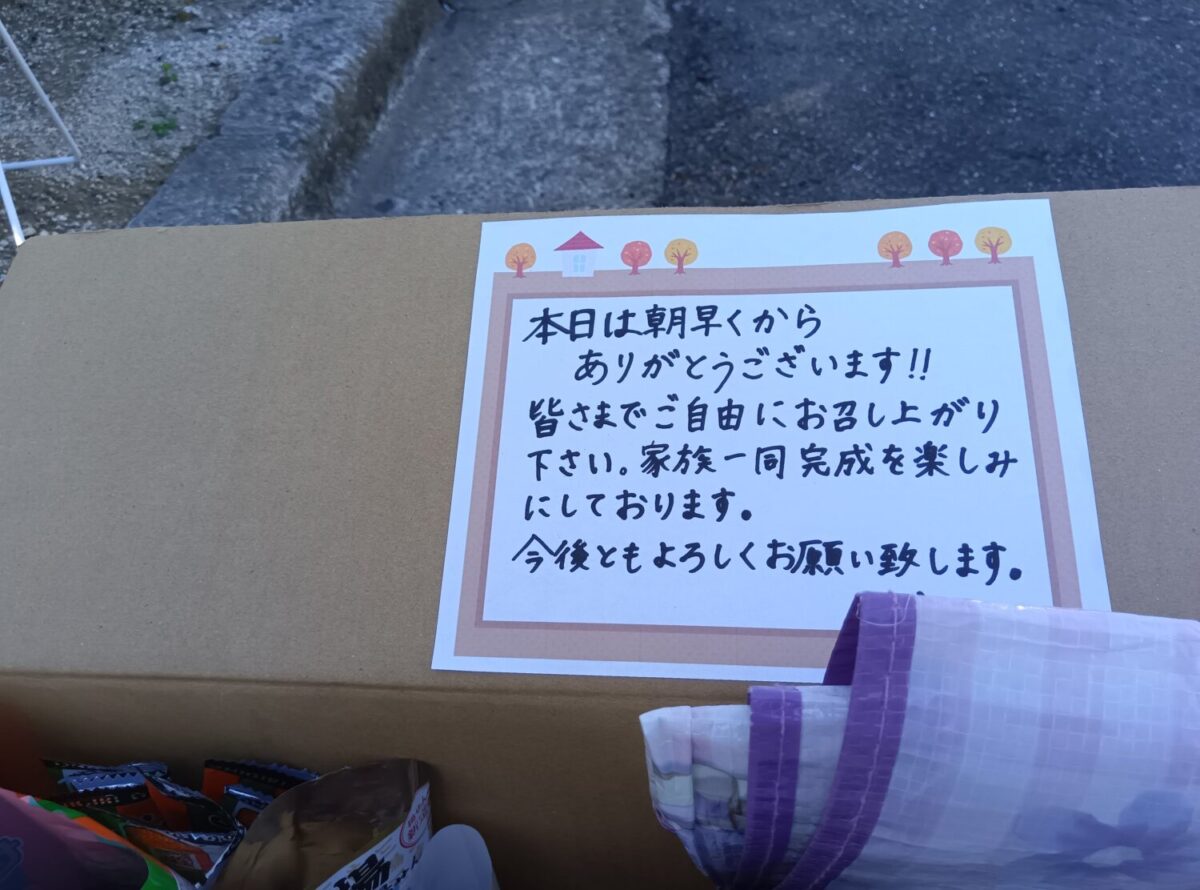 本日は朝早くから
ありがとうございます!!
皆さまでご自由にお召し上がり
下さい。家族一同完成を楽しみ
にしております。
今後ともよろしくお願い致します。